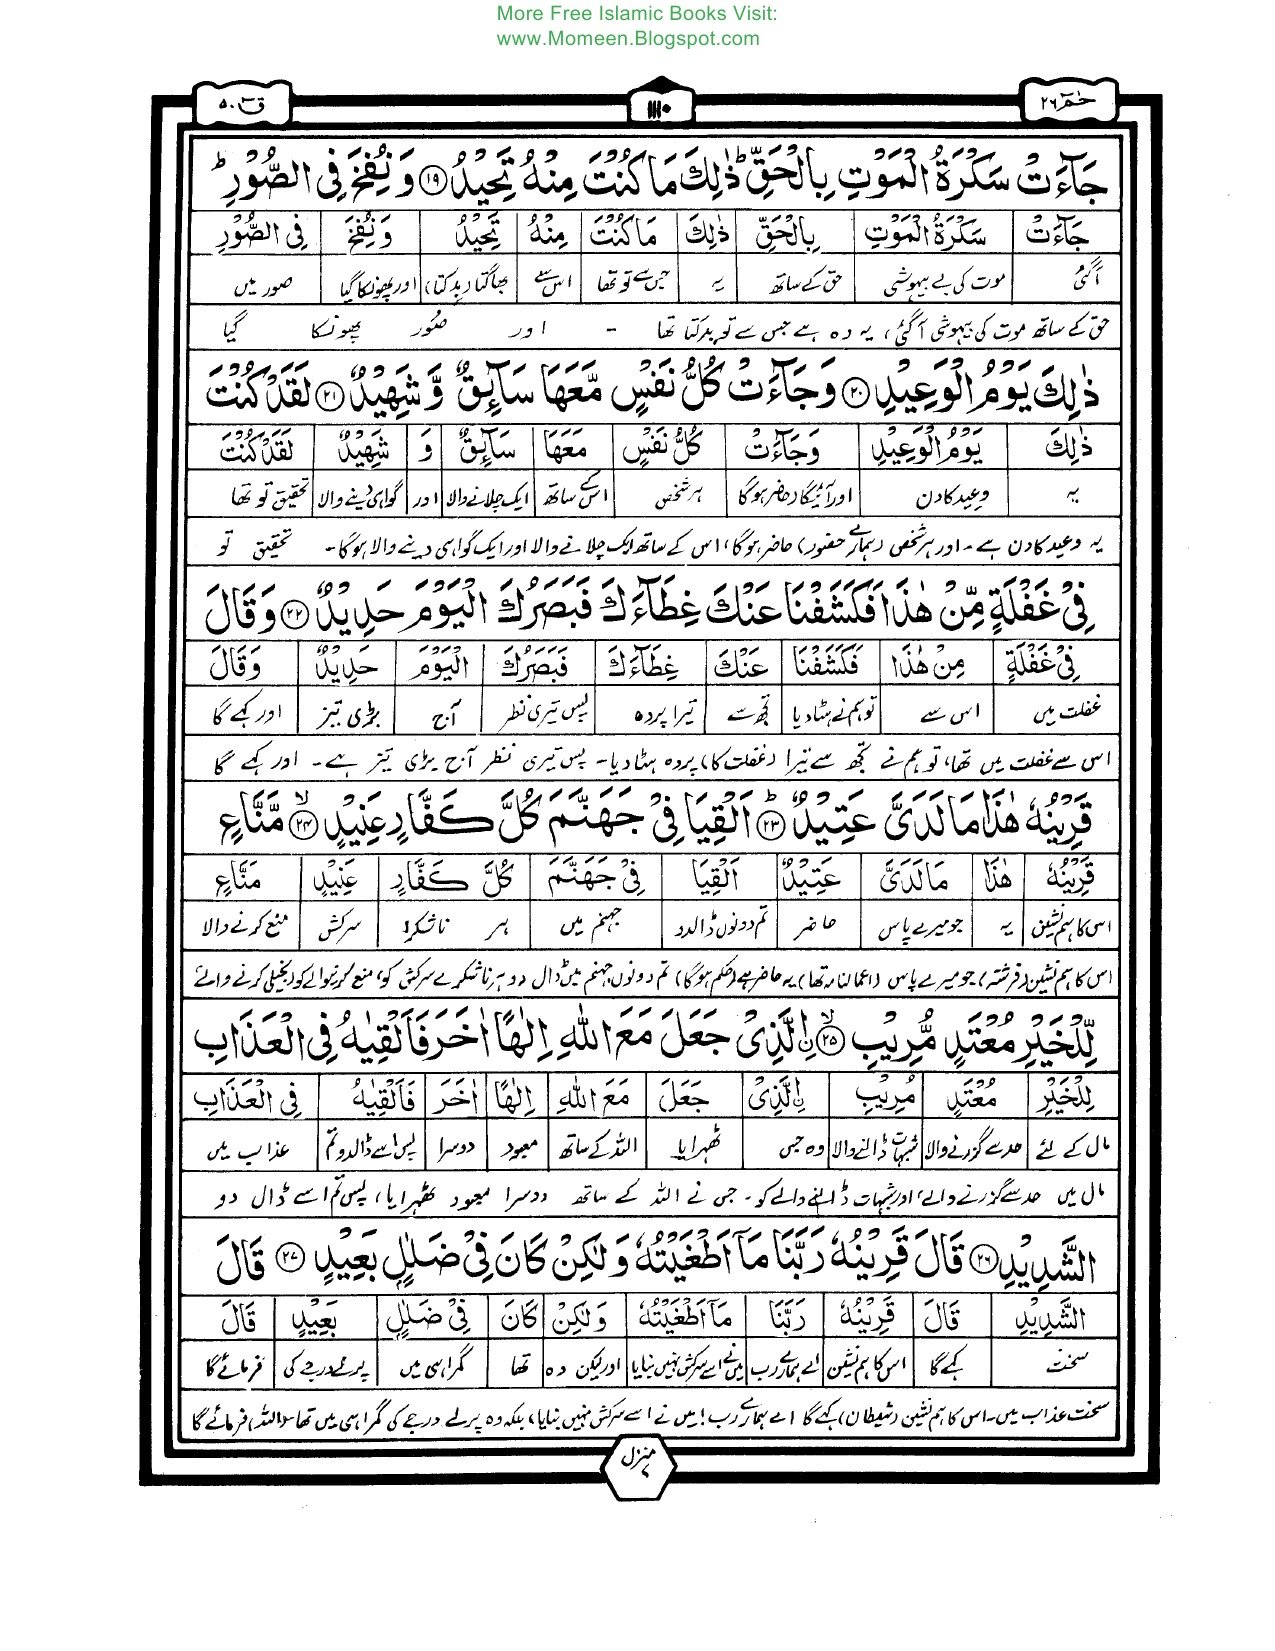 More Free Islamic Books Visit:
www.Momeen.Blogspot.com
حٰمٓ ٢٦
١١١٠
قٓ ٥٠
جَآءَتْ سَكْرَةُ الْمَوْتِ بِالْحَقِّ ؕ ذٰلِكَ مَا كُنْتَ مِنْهُ تَحِيْدُ ﴿١٩﴾ وَ نُفِخَ فِى الصُّوْرِ ؕ
جَآءَتْ سَكْرَةُ الْمَوْتِ بِالْحَقِّ ذٰلِكَ مَا كُنْتَ مِنْهُ تَحِيْدُ وَ نُفِخَ فِى الصُّوْرِ
آگئی موت کی بے ہیوشی حق کے ساتھ یہ جس سے تو تھا اس سے بھاگتا (بدکتا) اور پھونکا گیا صور میں
حق کے ساتھ موت کی بیہوشی آگئی، یہ وہ ہے جس سے تو بدکتا تھا - اور صُور پھونکا گیا
ذٰلِكَ يَوْمُ الْوَعِيْدِ ﴿٢٠﴾ وَ جَآءَتْ كُلُّ نَفْسٍ مَّعَهَا سَآئِقٌ وَّ شَهِيْدٌ ﴿٢١﴾ لَقَدْ كُنْتَ
ذٰلِكَ يَوْمُ الْوَعِيْدِ وَجَآءَتْ كُلُّ نَفْسٍ مَعَهَا سَآئِقٌ وَ شَهِيْدٌ لَقَدْ كُنْتَ
یہ وعید کا دن اور آئیگا (حاضر ہوگا) ہر شخص اس کے ساتھ ایک چلانے والا اور گواہی دینے والا تحقیق تو تھا
یہ وعید کا دن ہے - اور ہر شخص (ہمارے حضور) حاضر ہوگا، اس کے ساتھ ایک چلانے والا اور ایک گواہی دینے والا ہوگا - تحقیق تو
فِىْ غَفْلَةٍ مِّنْ هٰذَا فَكَشَفْنَا عَنْكَ غِطَآءَكَ فَبَصَرُكَ الْيَوْمَ حَدِيْدٌ ﴿٢٢﴾ وَ قَالَ
فِىْ غَفْلَةٍ مِنْ هٰذَا فَكَشَفْنَا عَنْكَ غِطَآءَكَ فَبَصَرُكَ الْيَوْمَ حَدِيْدٌ وَقَالَ
غفلت میں اس سے تو ہم نے ہٹا دیا تجھ سے تیرا پردہ پس تیری نظر آج بڑی تیز اور کہے گا
اس سے غفلت میں تھا، تو ہم نے تجھ سے تیرا (غفلت کا) پردہ ہٹا دیا - پس تیری نظر آج بڑی تیز ہے - اور کہے گا
قَرِيْنُهٗ هٰذَا مَا لَدَىَّ عَتِيْدٌ ؕ ﴿٢٣﴾ اَلْقِيَا فِىْ جَهَنَّمَ كُلَّ كَفَّارٍ عَنِيْدٍ ۙ ﴿٢٤﴾ مَّنَّاعٍ
قَرِيْنُهٗ هٰذَا مَا لَدَىَّ عَتِيْدٌ اَلْقِيَا فِىْ جَهَنَّمَ كُلَّ كَفَّارٍ عَنِيْدٍ مَنَّاعٍ
اس کا ہم نشین یہ جو میرے پاس حاضر تم دونوں ڈالدو جہنم میں ہر ناشکرا سرکش منع کرنے والا
اس کا ہم نشین (فرشتہ) جو میرے پاس (اعمالنامہ تھا) یہ حاضر ہے (حکم ہوگا) تم دونوں جہنم میں ڈال دو ہر ناشکرے سرکش کو، منع کرنیوالے کو (بخیلی کرنے والے)
لِّلْخَيْرِ مُعْتَدٍ مُّرِيْبٍ ۙ ﴿٢٥﴾ ۨالَّذِىْ جَعَلَ مَعَ اللّٰهِ اِلٰهًا اٰخَرَ فَاَلْقِيٰهُ فِى الْعَذَابِ
لِلْخَيْرِ مُعْتَدٍ مُرِيْبٍ ۨالَّذِىْ جَعَلَ مَعَ اللّٰهِ اِلٰهًا اٰخَرَ فَاَلْقِيٰهُ فِى الْعَذَابِ
مال کے لئے حد سے گزرنے والا شبہات ڈالنے والا وہ جس ٹھہرایا اللہ کے ساتھ معبود دوسرا پس اسے ڈالدو تم عذاب میں
مال میں حد سے گزرنے والے، اور شبہات ڈالنے والے کو - جس نے اللہ کے ساتھ دوسرا معبود ٹھہرایا، پس تم اسے ڈال دو
الشَّدِيْدِ ﴿٢٦﴾ قَالَ قَرِيْنُهٗ رَبَّنَا مَاۤ اَطْغَيْتُهٗ وَ لٰكِنْ كَانَ فِىْ ضَلٰلٍۭ بَعِيْدٍ ﴿٢٧﴾ قَالَ
الشَّدِيْدِ قَالَ قَرِيْنُهٗ رَبَّنَا مَاۤ اَطْغَيْتُهٗ وَ لٰكِنْ كَانَ فِىْ ضَلٰلٍ بَعِيْدٍ قَالَ
سخت کہے گا اس کا ہم نشین اے ہمارے رب میں نے اسے سرکش نہیں بنایا اور لیکن وہ تھا گمراہی میں پرلے درجے کی فرمائے گا
سخت عذاب میں - اس کا ہم نشین (شیطان) کہے گا اے ہمارے رب! میں نے اسے سرکش نہیں بنایا، بلکہ وہ پرلے درجے کی گمراہی میں تھا - (اللہ) فرمائے گا
منزل ٧